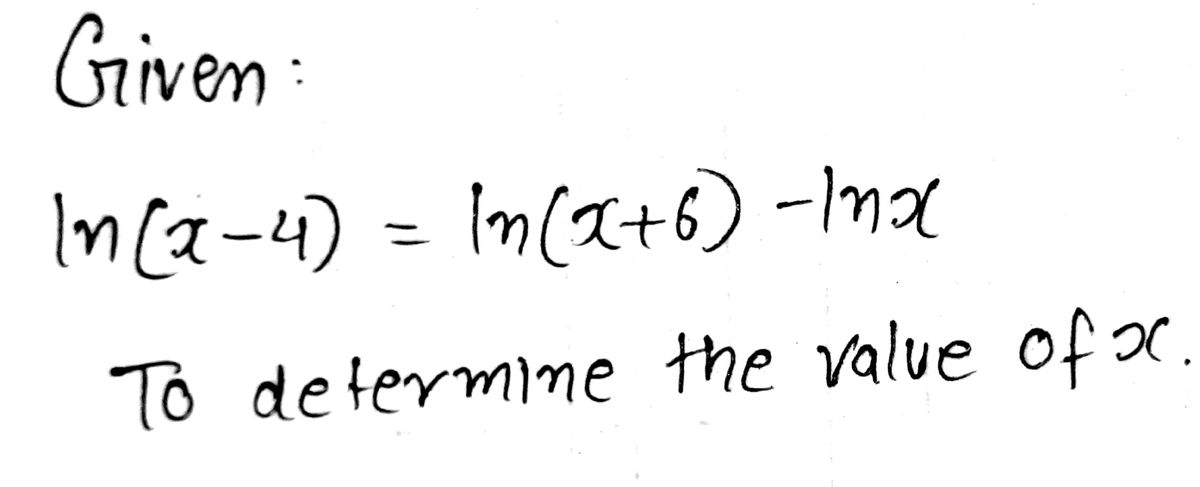 Given:
ln(x-4) = ln(x+6) -lnx
To determine the value of x.